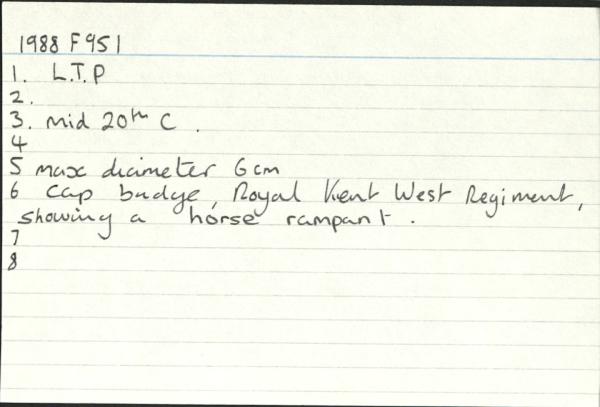 1988 F951
1. L.T.P
2.
3. mid 20th C.
4
5 max diameter 6cm
6 cap badge, Royal Kent West Regiment,
showing a horse rampant.
7
8